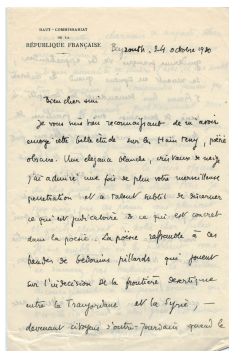 HAUT-COMMISSARIAT
DE LA
RÉPUBLIQUE FRANÇAISE
Beyrouth, 24 octobre 1930
Bien cher ami
Je vous suis bien reconnaissant de m'avoir
envoyé cette belle étude sur les Hain teny, poésie
obscure. Une élégance blanche, cristaux de neige
J'ai admiré une fois de plus votre merveilleuse
pénétration et ce talent subtil de discerner
ce qui est de ce qui est concret
dans la poésie. La poésie ressemble à ces
bandes de bédouins pillards qui jouent
sur l'indécision de la frontière désertique
entre la Transjordanie et la Syrie, —
devenant citoyens d'outre-Jourdain quand le